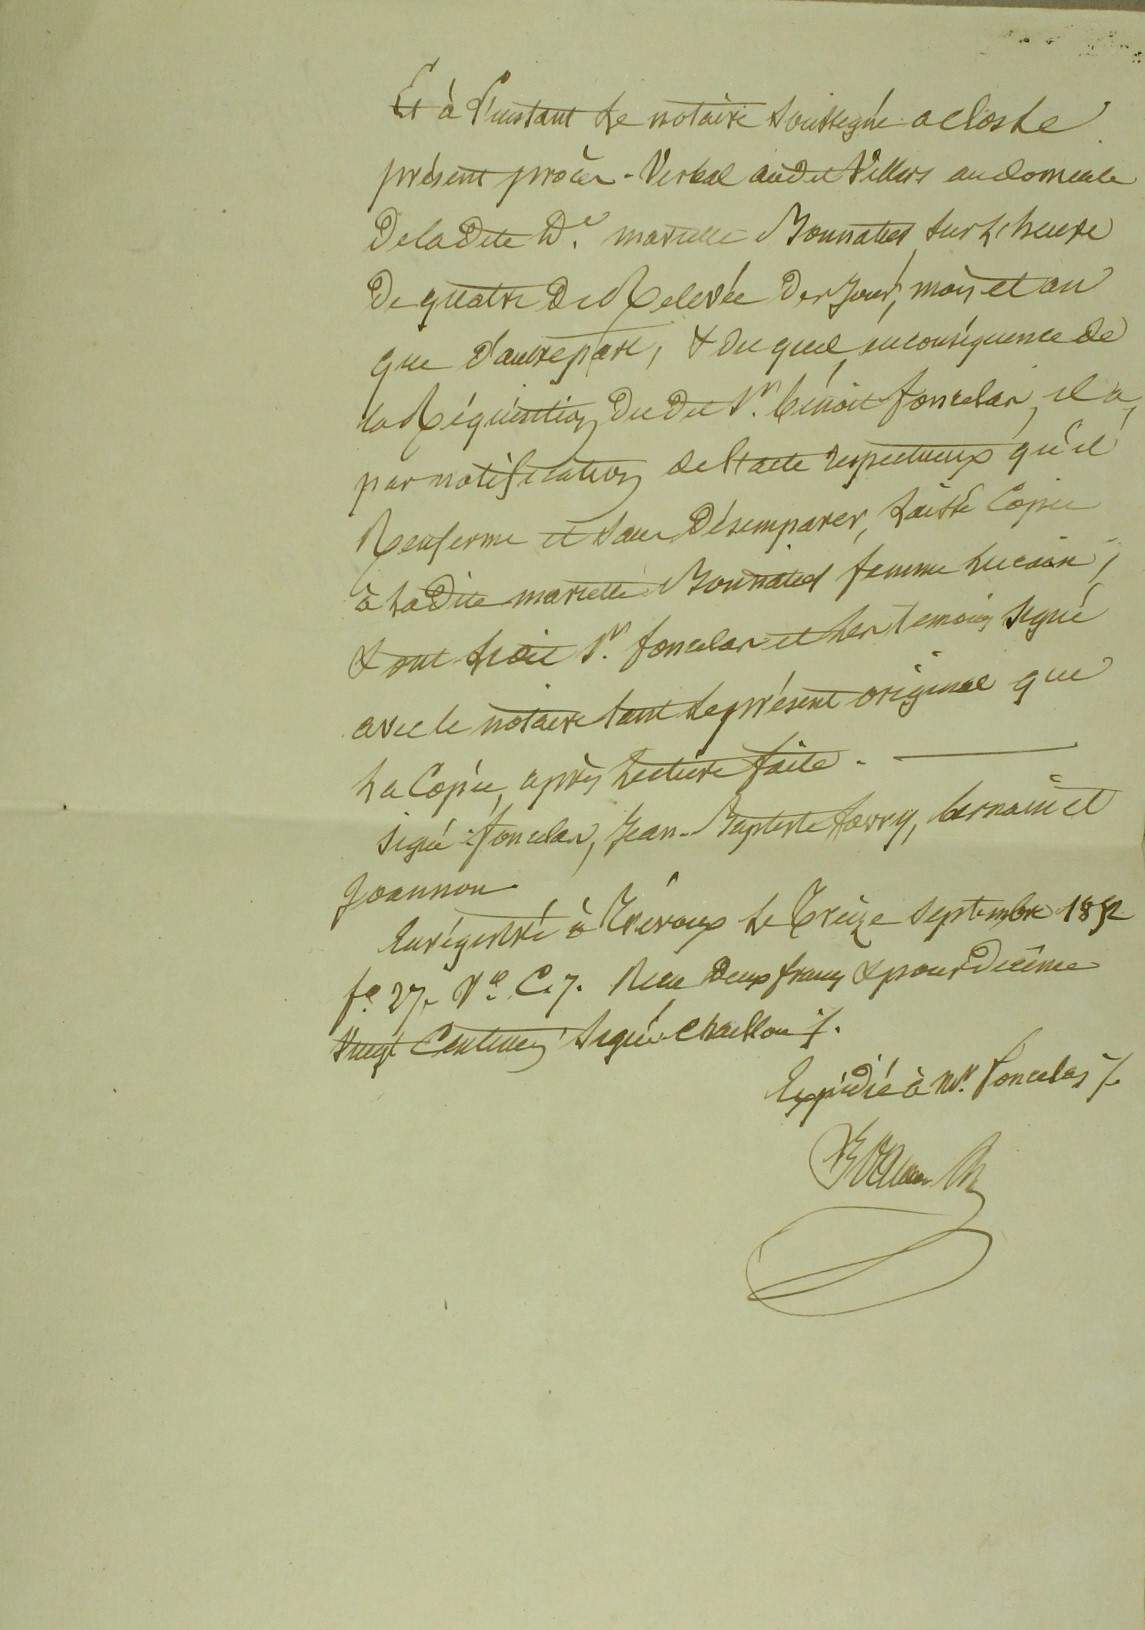 Et à l'instant le notaire soussigné a clos le
présent procès-Verbal audit Villars au domicile
De la dite De. Marcelle Bonnated sur l'heure
De quatre De Relevée Des Jour, mois et an
que d'autre part, & du quel, en conséquence de
la Réquisition du dit Sr. Benoit foncelas, il a,
par notification de l'acte respectueux qu'il
Renferme et sans Désemparer, laissé Copie
à la Dite marcelle Bonnated femme ,
& ont le dit Sr. foncelas et les temoins signé
avec le notaire tant le présent original que
la Copie, après lecture faite. —
signé : foncelas, Jean-Baptiste favry, bernain et
Joannon
Enrégistré à Trévoux le Treize septembre 1852
fo. 27. Vo. C. 7. Recu Deux francs & pour Décime
Vingt Centimes signé
Expédié à Mr. foncelas